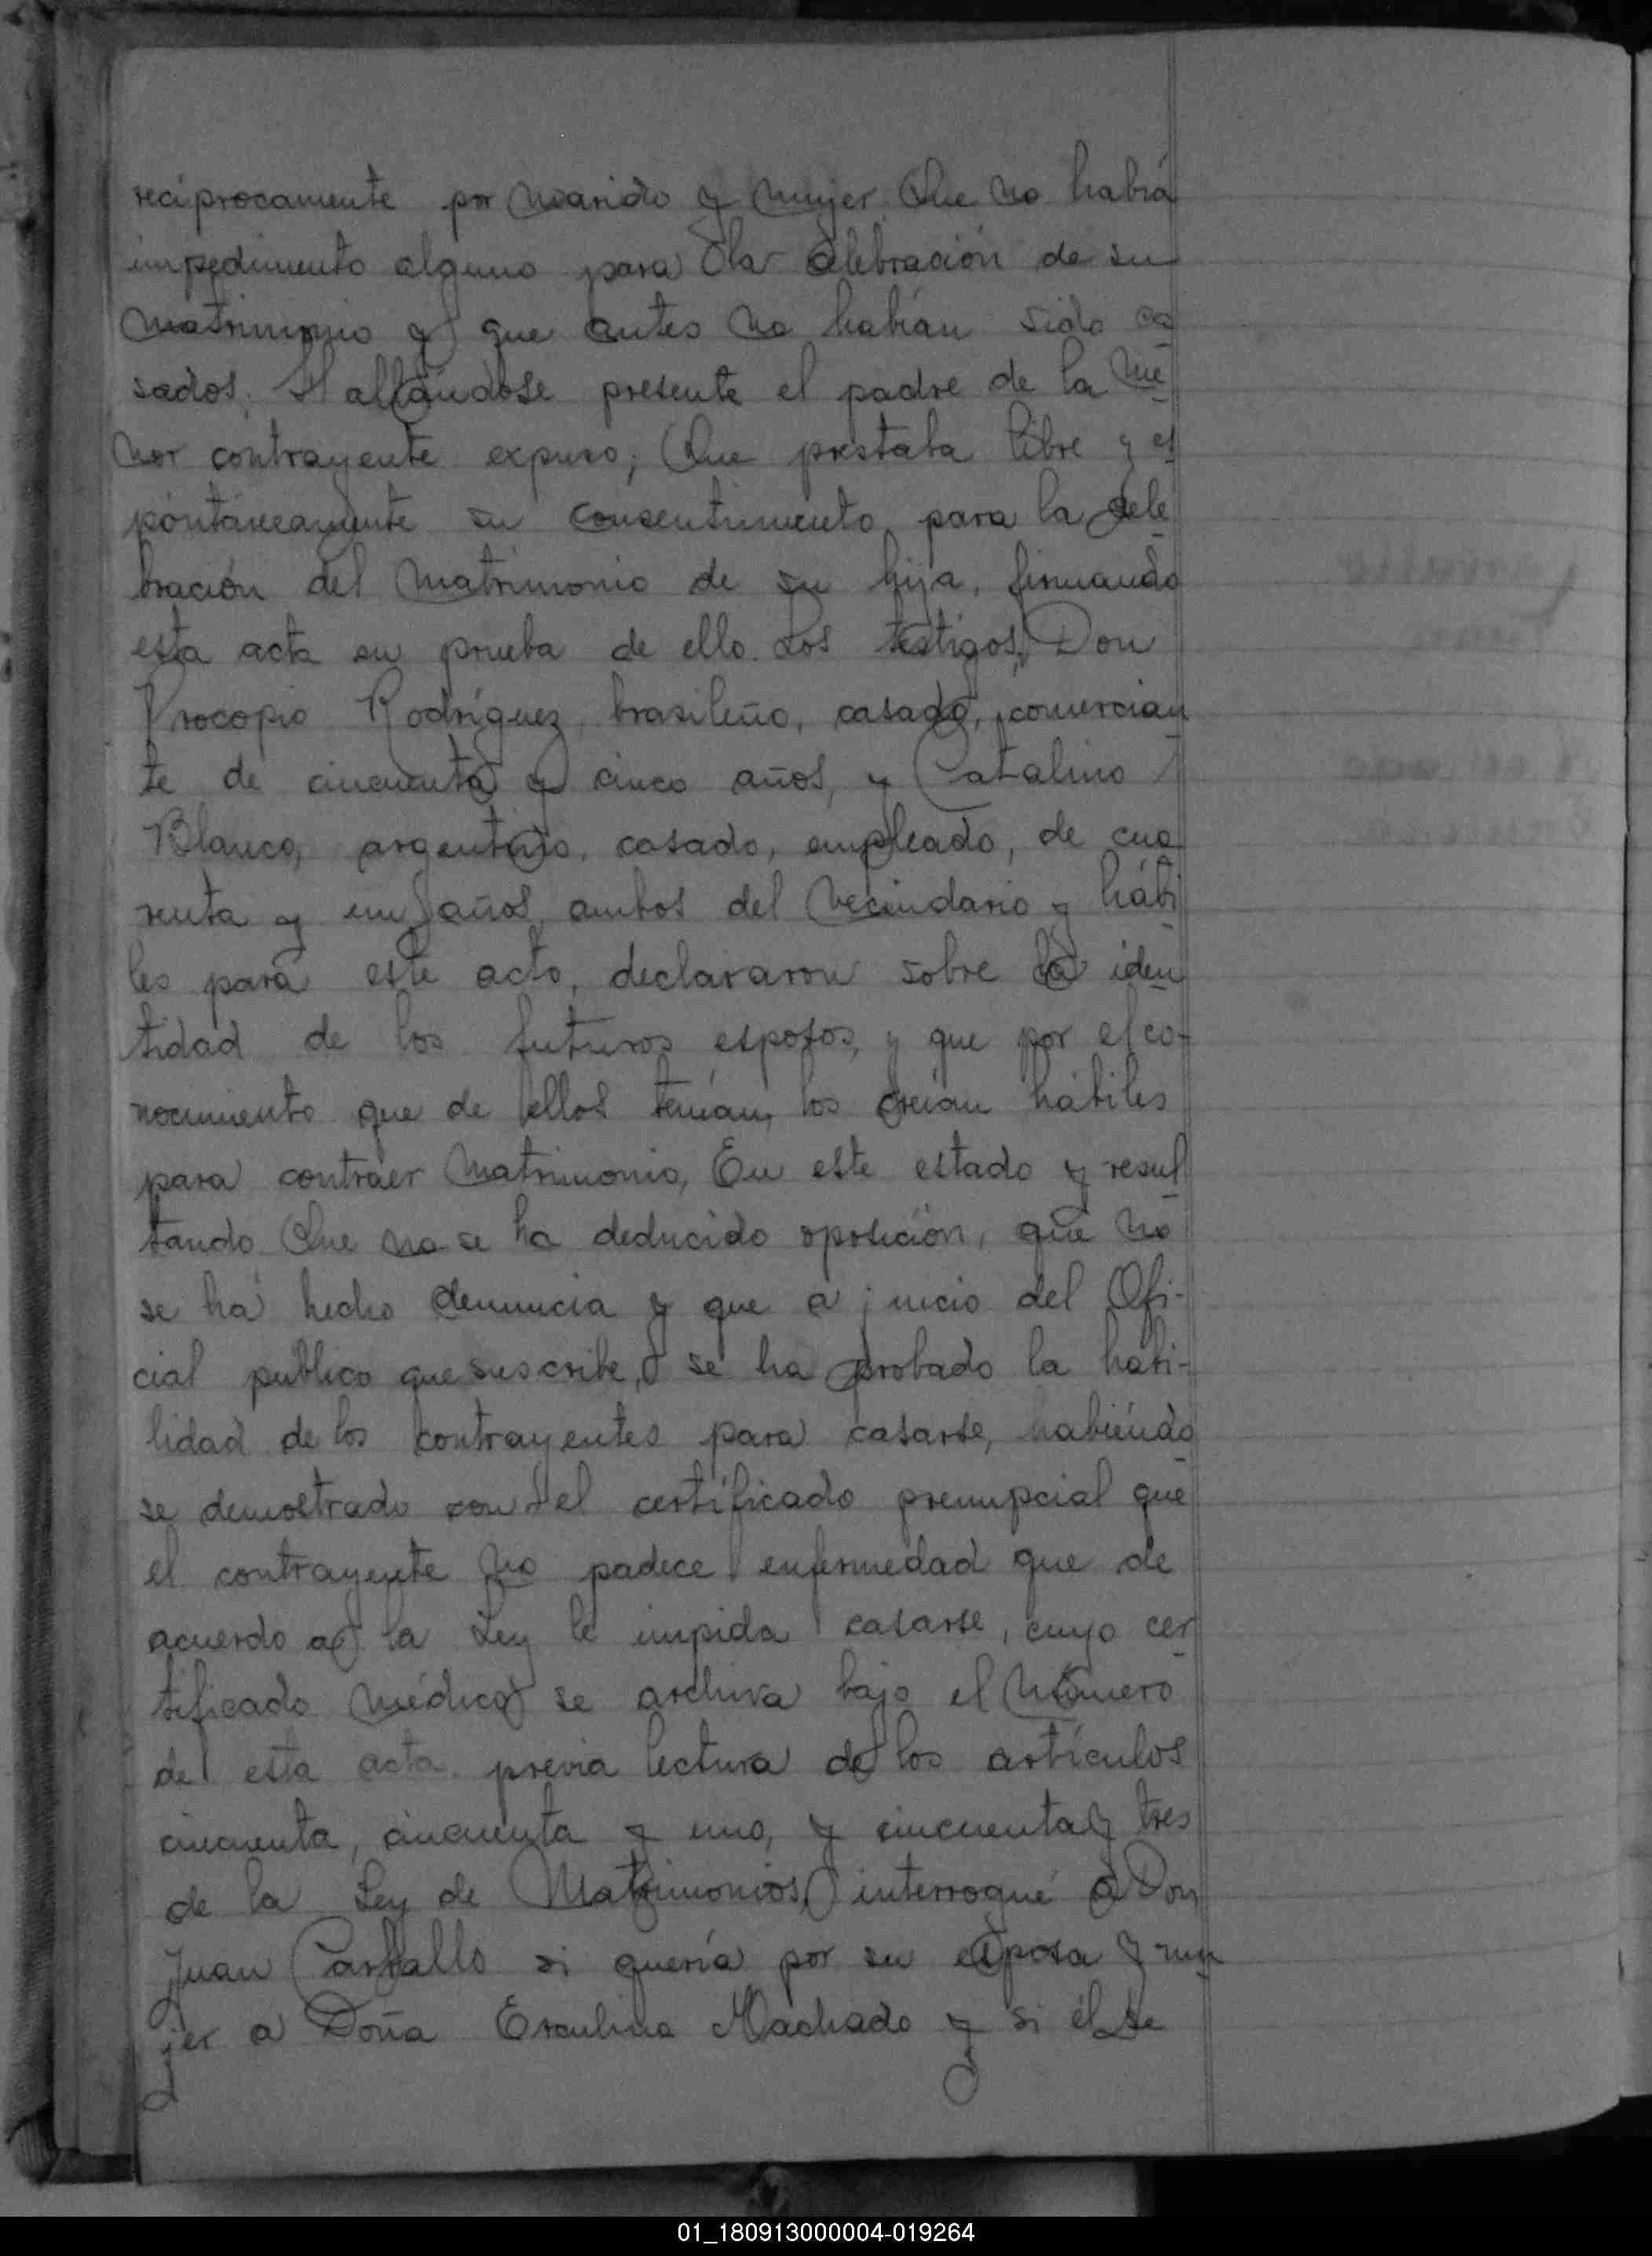 reciprocamente por marido y mujer. Que no había
impedimento alguno para la celebración de su
matrimonio y que antes no habían sido ca
sados. Hallándose presente el padre de la me
nor contrayente expuso; Que prestaba libre y es
pontáneamente su consentimiento para la cele
bración del matrimonio de su hija, firmando
esta acta en prueba de ello. Los testigos, Don
Procopio Rodríguez, brasileño, casado, comercian
te de cincuenta y cinco años, y Catalino
Blanco, argentino, casado, empleado, de cua
renta y un años, ambos del vecindario y hábi
les para este acto, declararon sobre la iden
tidad de los futuros esposos, y que por el co-
nocimiento que de ellos tenían, los creían hábiles
para contraer matrimonio, En este estado y resul
tando Que no se ha deducido oposición, que no
se ha hecho denuncia y que a juicio del Ofi-
cial publico que suscribe, se ha probado la habi-
lidad de los contrayentes para casarse, habiéndo
se demostrado con el certificado prenupcial que
el contrayente no padece enfermedad que de
acuerdo a la Ley le impida casarse, cuyo cer
tificado médico se archiva bajo el número
de esta acta previa lectura de los artículos
cincuenta, cincuenta y uno, y cincuenta y tres
de la Ley de Matrimonios, interrogué a Don
Juan Carballo si quería por su esposa y mu
jer a Doña Erculina Machado y si él se
01_180913000004-019264